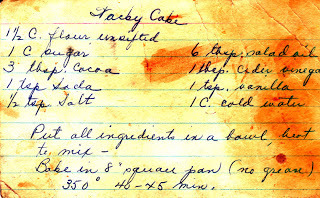 Wacky Cake
1½ C. flour unsifted
1 C sugar 6 tbsp. salad oil
3 tbsp. Cocoa 1 tbsp. Cider vinegar
1 tsp Soda 1 tsp. vanilla
½ tsp. Salt 1 C. cold water
Put all ingredients in a bowl, beat
to mix -
Bake in 8" square pan (no grease)
350° 40-45 min.